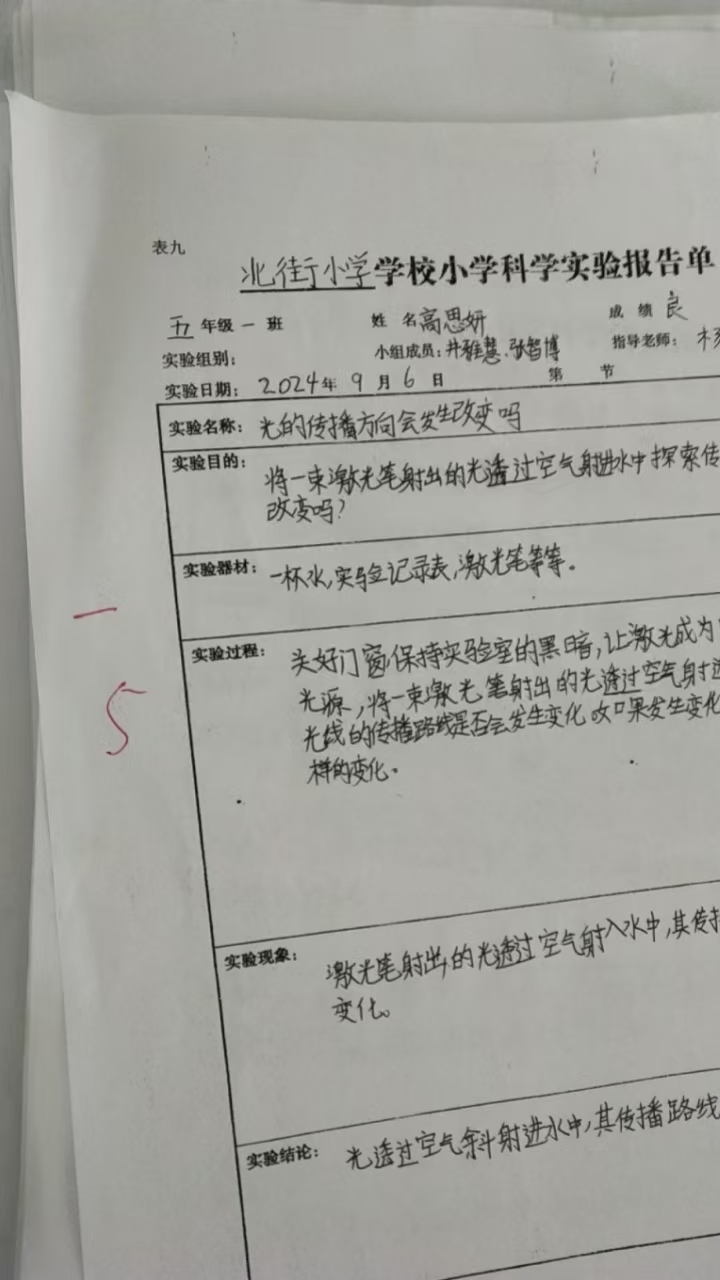 表九
北街小学学校小学科学实验报告单
五年级一班 姓名高思妍 成绩良
实验组别: 小组成员:井雅慧、张智博 指导老师:
实验日期: 2024年9月6日 第 节
实验名称: 光的传播方向会发生改变吗
实验目的: 将一束激光笔射出的光透过空气射进水中探索传
改变吗?
实验器材: 一杯水,实验记录表,激光笔等等。
一
5
实验过程: 关好门窗保持实验室的黑暗,让激光成为
光源,将一束激光笔射出的光透过空气射进
光线的传播路线是否会发生变化如果发生变化
样的变化。
实验现象: 激光笔射出的光透过空气射入水中,其传播
变化。
实验结论: 光透过空气斜射进水中,其传播路线